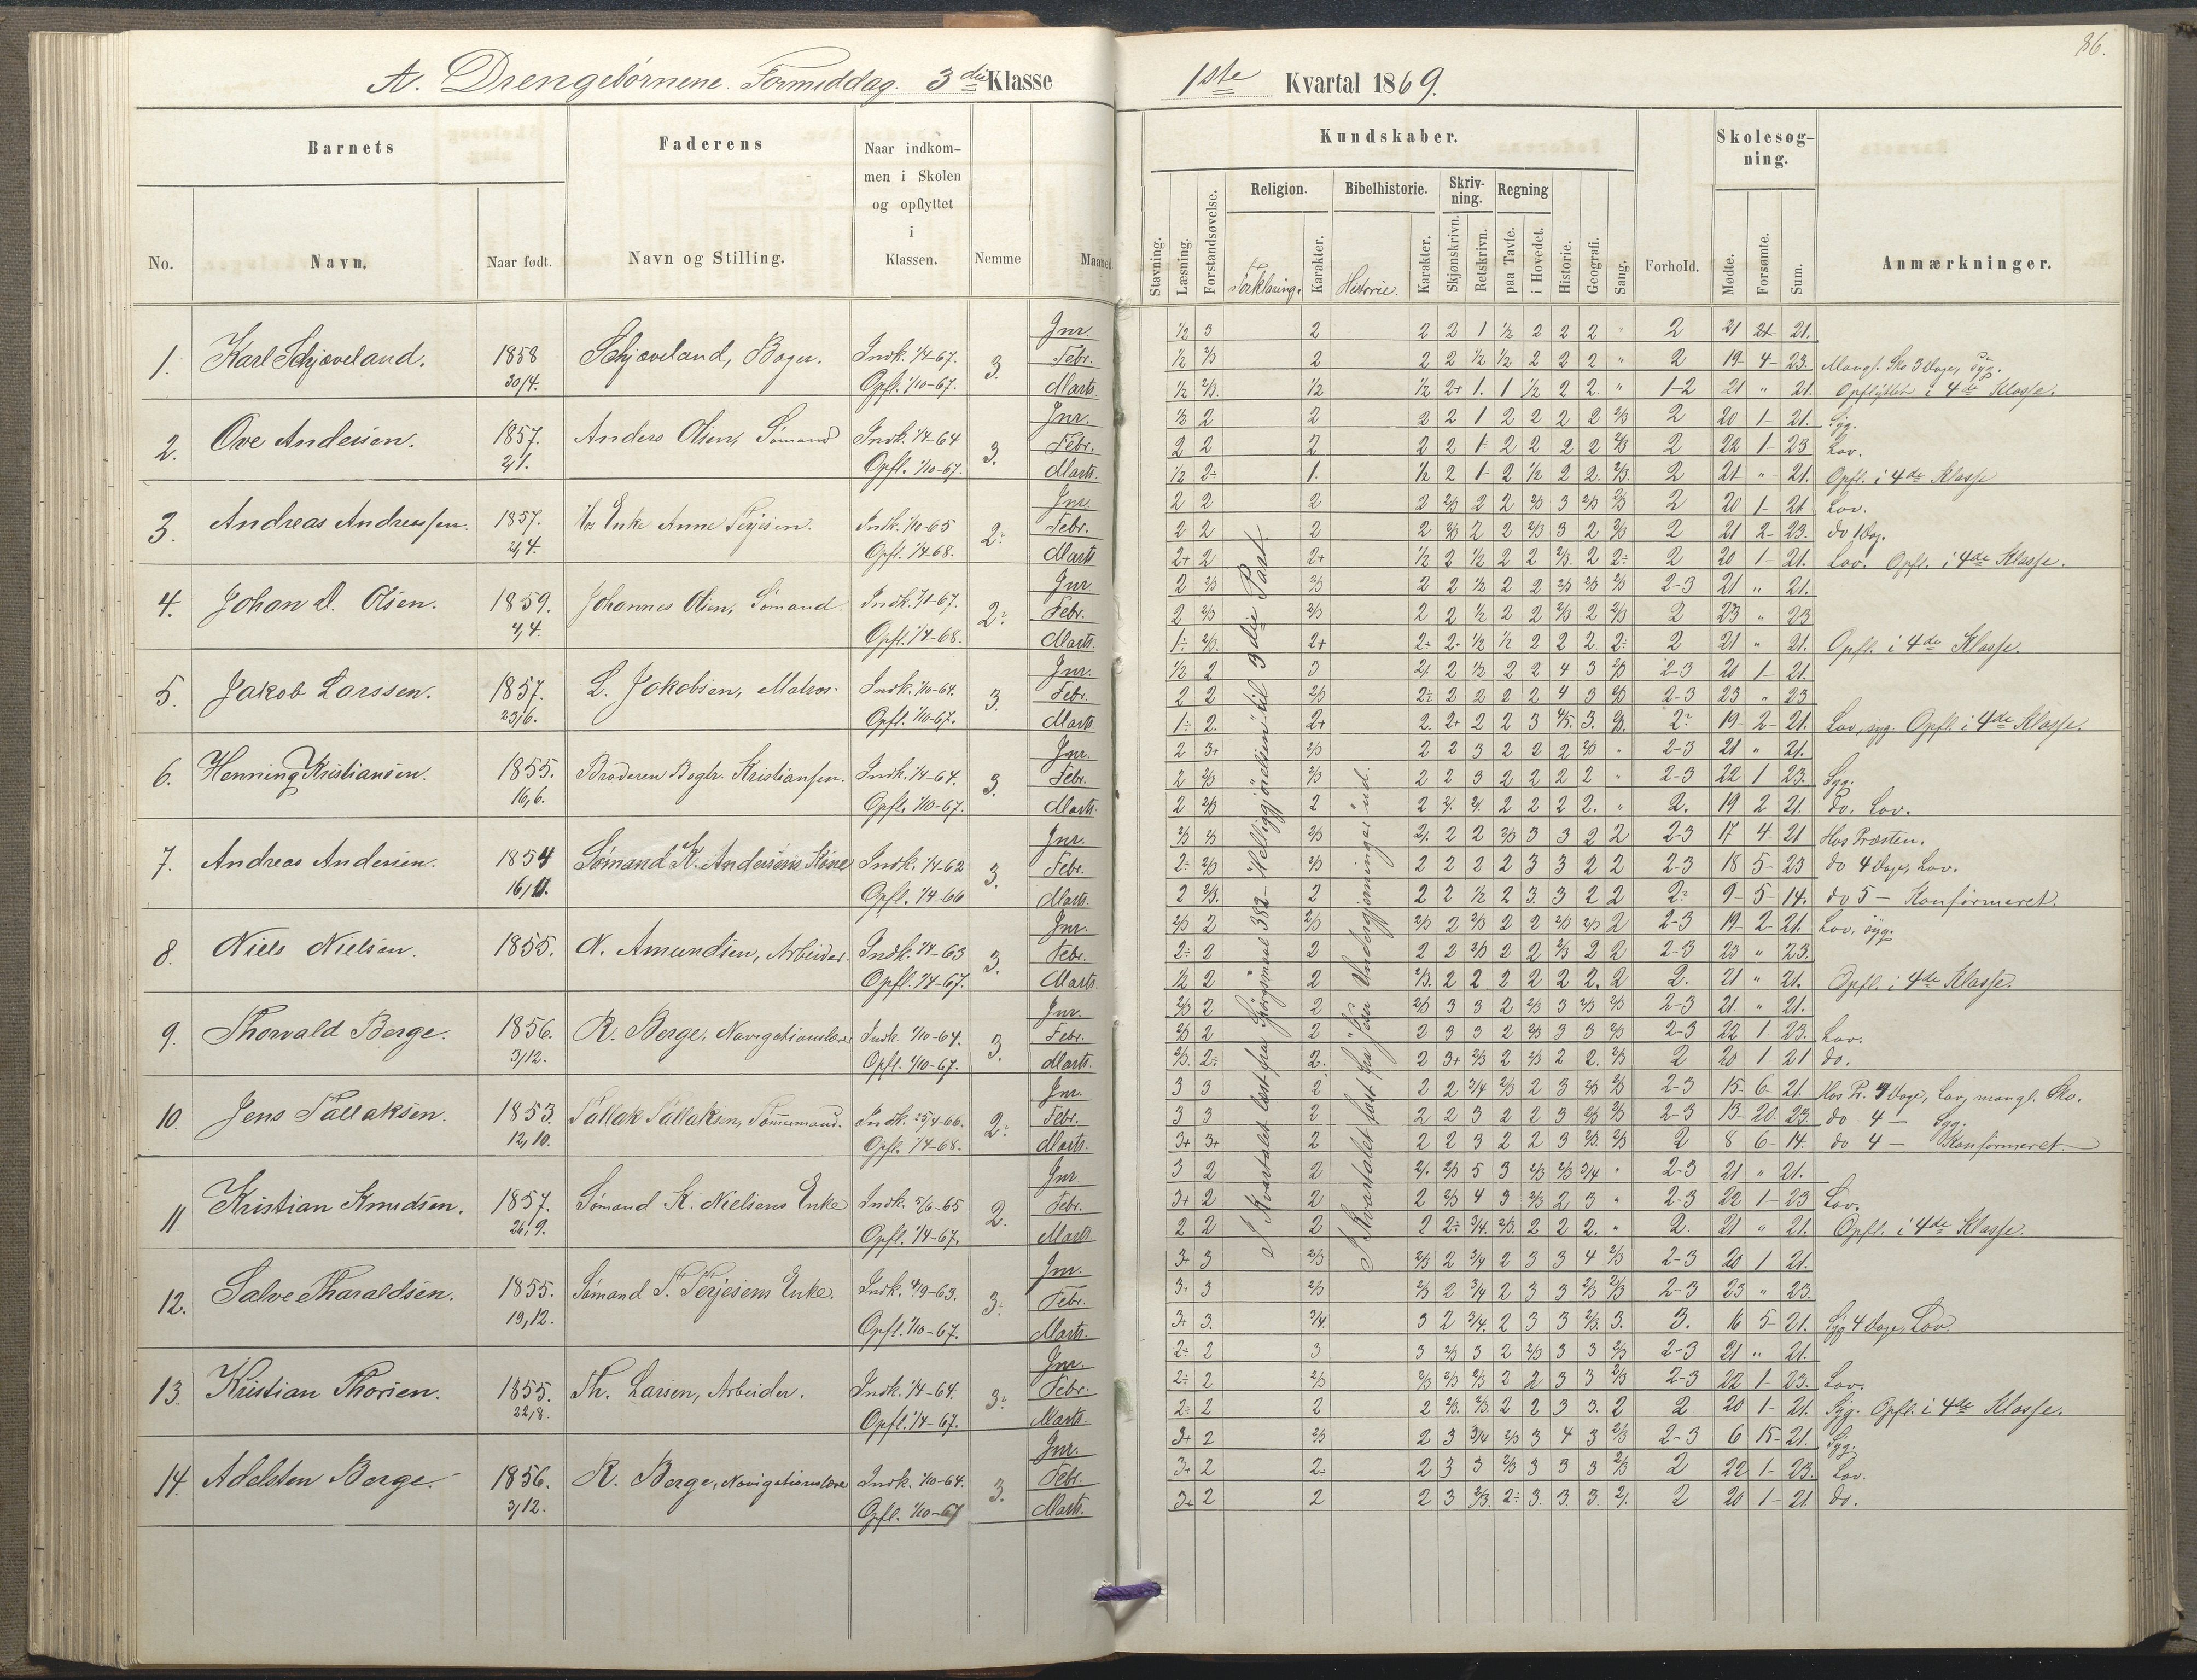 86.
A. Drengebørnene. Formiddag. 3die Klasse
1ste Kvartal 1869.
Barnets
Faderens
Naar indkom-
men i Skolen
og opflyttet
i
Klassen.
No.
Navn.
Naar født.
Navn og Stilling.
Nemme
Maaned
Kundskaber.
Skolesøg-
ning.
Religion.
Bibelhistorie.
Skriv-
ning.
Regning
Stavning.
Læsning.
Forstandsøvelse.
Forklaring.
Karakter.
Historie.
Karakter.
Skjønskrivn.
Retskrivn.
paa Tavle.
i Hovedet.
Historie.
Geografi.
Sang.
Forhold.
Mødte.
Forsømte.
Sum.
Anmærkninger.
I Kvartalet læst fra Spørgsmaal 382 - "Helliggjørelsen" til 3die Part.
I Kvartalet fra "Jesu Undergjerninger" ind.
1. Karl Schjøveland. 1858 30/4. Schjøveland, Bager. Indk. 1/4-67. Opfl. 1/10-67. 3.
Jnr. 1/2 3 2 2 2 1 1/2 2 2 2 " 2 21 21.
Febr. 1/2 2/3 2 2 2 1/2 1/2 2 2 2 " 2 19- 4- 23. Mangl. Sko 3 Dage, Syg.
Marts. 1/2 2/3. 1/2 1/2 2+ 1. 1 1/2 2 2. " 1-2 21 " 21. Opflyttet i 4de Klasse.
2. Ove Andersen. 1857. 2/1. Anders Olsen, Sømand Indk. 1/4-64 Opfl. 1/10-67. 3.
Jnr. 1/2 2 2 2 2 1 2 2 2 2 2/3 2 20 1- 21. Syg.
Febr. 2 2 2 2 2 1- 2 2 2 2 2/3 2 22 1- 23 Lov.
Marts. 1/2 2÷ 1. 1/2 2 1- 2 1/2 2 2. 2/3. 2 21 " 21. Opfl. i 4de Klasse
3. Andreas Andreassen. 1857. 21/4. Hos Enke Anne Terjesen. Indk. 1/10-65 Opfl. 1/4-68. 2÷
Jnr. 2 2 2 2 2/3 2 2 2/3 3 2/3 2/3 2 20 1- 21 Lov.
Febr. 2 2 2 2 2/3 2 2 2/3 3 2 2/3 2 21 2- 23. do 1 Dag.
Marts 2+ 2 2+ 1/2 2 1/2 2 2 2/3. 2 2÷ 2 20 1- 21. Lov. Opfl. i 4de Klasse.
4. Johan A. Olsen. 1859. 4/4. Johannes Olsen, Sømand. Opfl. 1/4-68. 2÷
Jnr 2 2/3 2/3 2 2 1/2 2 2 2/3 2/3 2/3 2-3 21 " 21.
Febr. 2 2/3 2/3 2 2 1/2 2 2 2/3 2 2/3 2 23 " 23
Marts. 1÷ 2/3. 2+ 2÷ 2+ 1/2 1/2 2 2 2. 2÷ 2 21 " 21. Opfl. i 4de Klasse.
5. Jakob Larssen. 1857. 23/6. L. Jakobsen, Matros. Indk. 1/10-64. Opfl. 1/10-67. 3.
Jnr. 1/2 2 3 2/. 2 1/2 2 2 4 3 2/3 2-3 20 1- 21.
Febr. 2 2 2/3 2÷ 2 2 2 2 4 3 2/3 2-3 23 " 23
Marts. 1÷ 2. 2+ 2. 2+ 2 2 3 4/5. 3. 2/3. 2÷ 19- 2- 21. Lov, syg. Opfl. i 4de Klasse.
6. Henning Kristiansen. 1855. 16/6. Broderen Bogtr. Kristiansen. Indk. 1/4-64. Opfl. 1/10-67. 3.
Jnr. 2 3+ 2/3 2 2 3 2 2 2 2/3 " 2-3 21 " 21.
Febr. 2 2/3 2/3 2 2 3 2 2 2 2 " 2-3 22 1 23. Syg.
Marts. 2 2/3 2 2 2/. 2/. 2 2 2 2. " 2. 19 2 21. Do. Lov.
7. Andreas Andersen. 1854 16/11. Sømand K. Andersens Kone Indk. 1/4-62 Opfl. 1/4-66 3.
Jnr. 2/3 2/3 2/3 2/. 2 2 2/3 3 3 2 2 2-3 17 4- 21 Hos Præsten.
Febr. 2÷ 2/3 2/3 2 2 2 2 3 3 2 2 2-3 18 5- 23 do 4 Dage, Lov.
Marts. 2 2/3. 2 2 2 1/2 2 3. 3 2 2 2÷ 9- 5- 14. do 5 - Konfirmeret.
8. Niels Nielsen. 1855. N. Amundsen, Arbeider. Indk. 1/4-63 Opfl. 1/4-67. 3.
Jnr. 2/3 2 2/3 2/3 2 2/3 2 2 2/3 2/3 2 2-3 19- 2- 21. Lov, syg.
Febr. 2÷ 2 2 2 2 2/3 2 2 2/3 2 2 2-3 23 " 23.
Marts. 1/2 2 2 2/3. 2 2 2 2 2 2. 2 2. 21 " 21. Opfl. i 4de Klasse.
9. Thorvald Berge. 1856. 3/12. R. Berge, Navigationslære Indk. 1/10-64. Opfl. 1/10-67. 3.
Jnr. 2/3 2 2 2/3 3 3 2 2/3 3 2/3 2/3 2-3 21 " 21.
Febr. 2/3 2 2 2 3 3 2 2/3 3 3 2/3 2-3 22 1 23. Lov.
Marts. 2/3. 2÷ 2. 2 3+ 2/3 2 2/3 2 2. 2/3 2 20 1- 21 do.
10. Jens Tallaksen. 1853. 12/10. Tallak Tallaksen, Tømmermand. Indk. 25/4-66. Opfl. 1/4-68. 2÷
Jnr. 3 3 2 2 2 3/4 2/3 2 3 2/3 2/3 2-3 15- 6- 21. Hos Pr. 4 Dage, Lov, mangl. Sko.
Febr. 3 3 2 2 2 3 2 2 3 2/3 2/3 2-3 13- 20. 23. do 4 - Syg.
Marts. 3+ 3+ 2 2 2 3 2 2 3 2/3. 2/3 2 8 6- 14. do 4 - Konfirmeret
11. Kristian Knudsen. 1857. 26/9. Sømand K. Nielsens Enke Indk. 5/6-65 Opfl. 1/4-67. 2.
Jnr 3 2 2 2/. 2/3 5 3 2/3 2/3 3/4 " 2-3 21 " 21.
Febr. 3+ 2 2 2 2/3 4 3 2/3 2 3 " 2-3 22 1- 23 Lov.
Marts 2 2 2 2 2÷ 3/4. 2/3. 2 2 2. " 2. 21 " 21. Opfl. i 4de Klasse.
12. Salve Tharaldsen. 1855. 19/12. Sømand T. Terjesens Enke. Indk. 4/9-63. Opfl. 1/10-67. 3÷
Jnr. 3+ 3 2/3 2/3 2 3/4 2 3 3 4 2/3 2-3 20 1 21.
Febr. 3+ 3 2/3 2/3 2 3/4 2 3 3 2/3 2/3 2-3 23 " 23.
Marts. 3+ 3. 3/4. 3 2 3/4. 2 3 3 2/3. 3. 3. 16 5- 21. Syg 4 Dage, Lov.
13. Kristian Thorsen. 1855. 22/8. Th. Larsen, Arbeider. Indk. 1/4-64. Opfl. 1/4-67. 3÷
Jnr. 2÷ 2 3 3 2/3 3 2 2/3 3 3 2/3 2-3 21 " 21.
Febr. 2÷ 2 2/3 2/3 2/3 2/3 2 2 3 3 2/3 2-3 22 1- 23. Lov.
Marts. 2÷ 2 2 2 2/3. 2/3. 2 2 3 3. 2 2 20 1- 21. Syg. Opfl. i 4de Klasse.
14. Adelsten Berge. 1856. 3/12. R. Berge, Navigationslære Indk. 1/10-64. Opfl. 1/10-67 3.
Jnr. 3+ 2 2/3 2 3 3/4 2/3 3 4 3 2/3 2-3 6 15- 21. Syg.
Febr. 3+ 2 2÷ 2 3 3 2/3 3 3 3 2/3 2 22 1- 23. Lov.
Marts. 3+ 2 2 2 3 2/3. 2÷ 3. 3. 3. 2/. 2 20 1- 21 do.